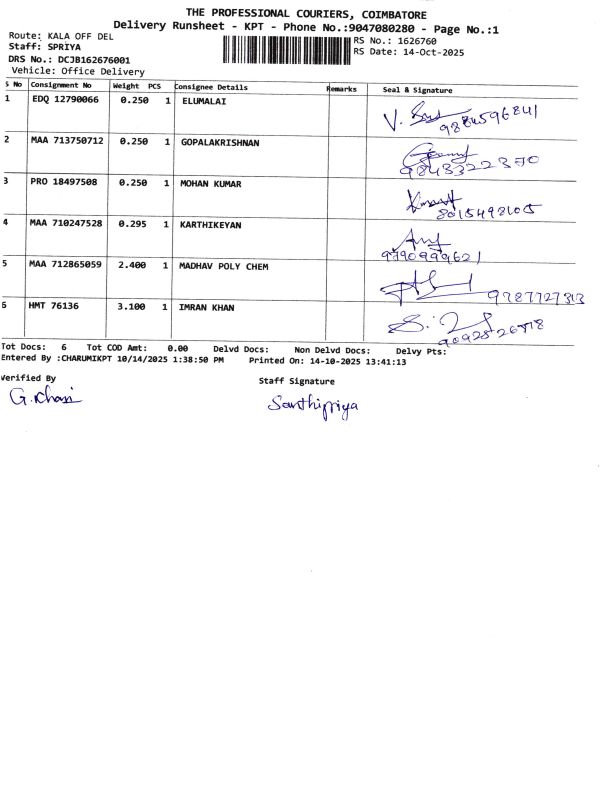 THE PROFESSIONAL COURIERS, COIMBATORE
Delivery Runsheet - KPT - Phone No.:9047080280 - Page No.:1
Route: KALA OFF DEL
Staff: SPRIYA
DRS No.: DCJB162676001
Vehicle: Office Delivery
RS No.: 1626760
RS Date: 14-Oct-2025
S No Consignment No Weight PCS Consignee Details Remarks Seal & Signature
1 EDQ 12790066 0.250 1 ELUMALAI
9884596841
2 MAA 713750712 0.250 1 GOPALAKRISHNAN
9843322370
3 PRO 18497508 0.250 1 MOHAN KUMAR
8015498105
4 MAA 710247528 0.295 1 KARTHIKEYAN
9790999621
5 MAA 712865059 2.400 1 MADHAV POLY CHEM
9787727313
6 HMT 76136 3.100 1 IMRAN KHAN
Tot Docs: 6 Tot COD Amt: 0.00 Delvd Docs: Non Delvd Docs: Delvy Pts:
Entered By :CHARUMIKPT 10/14/2025 1:38:50 PM Printed On: 14-10-2025 13:41:13
Verified By
Staff Signature
Santhipriya